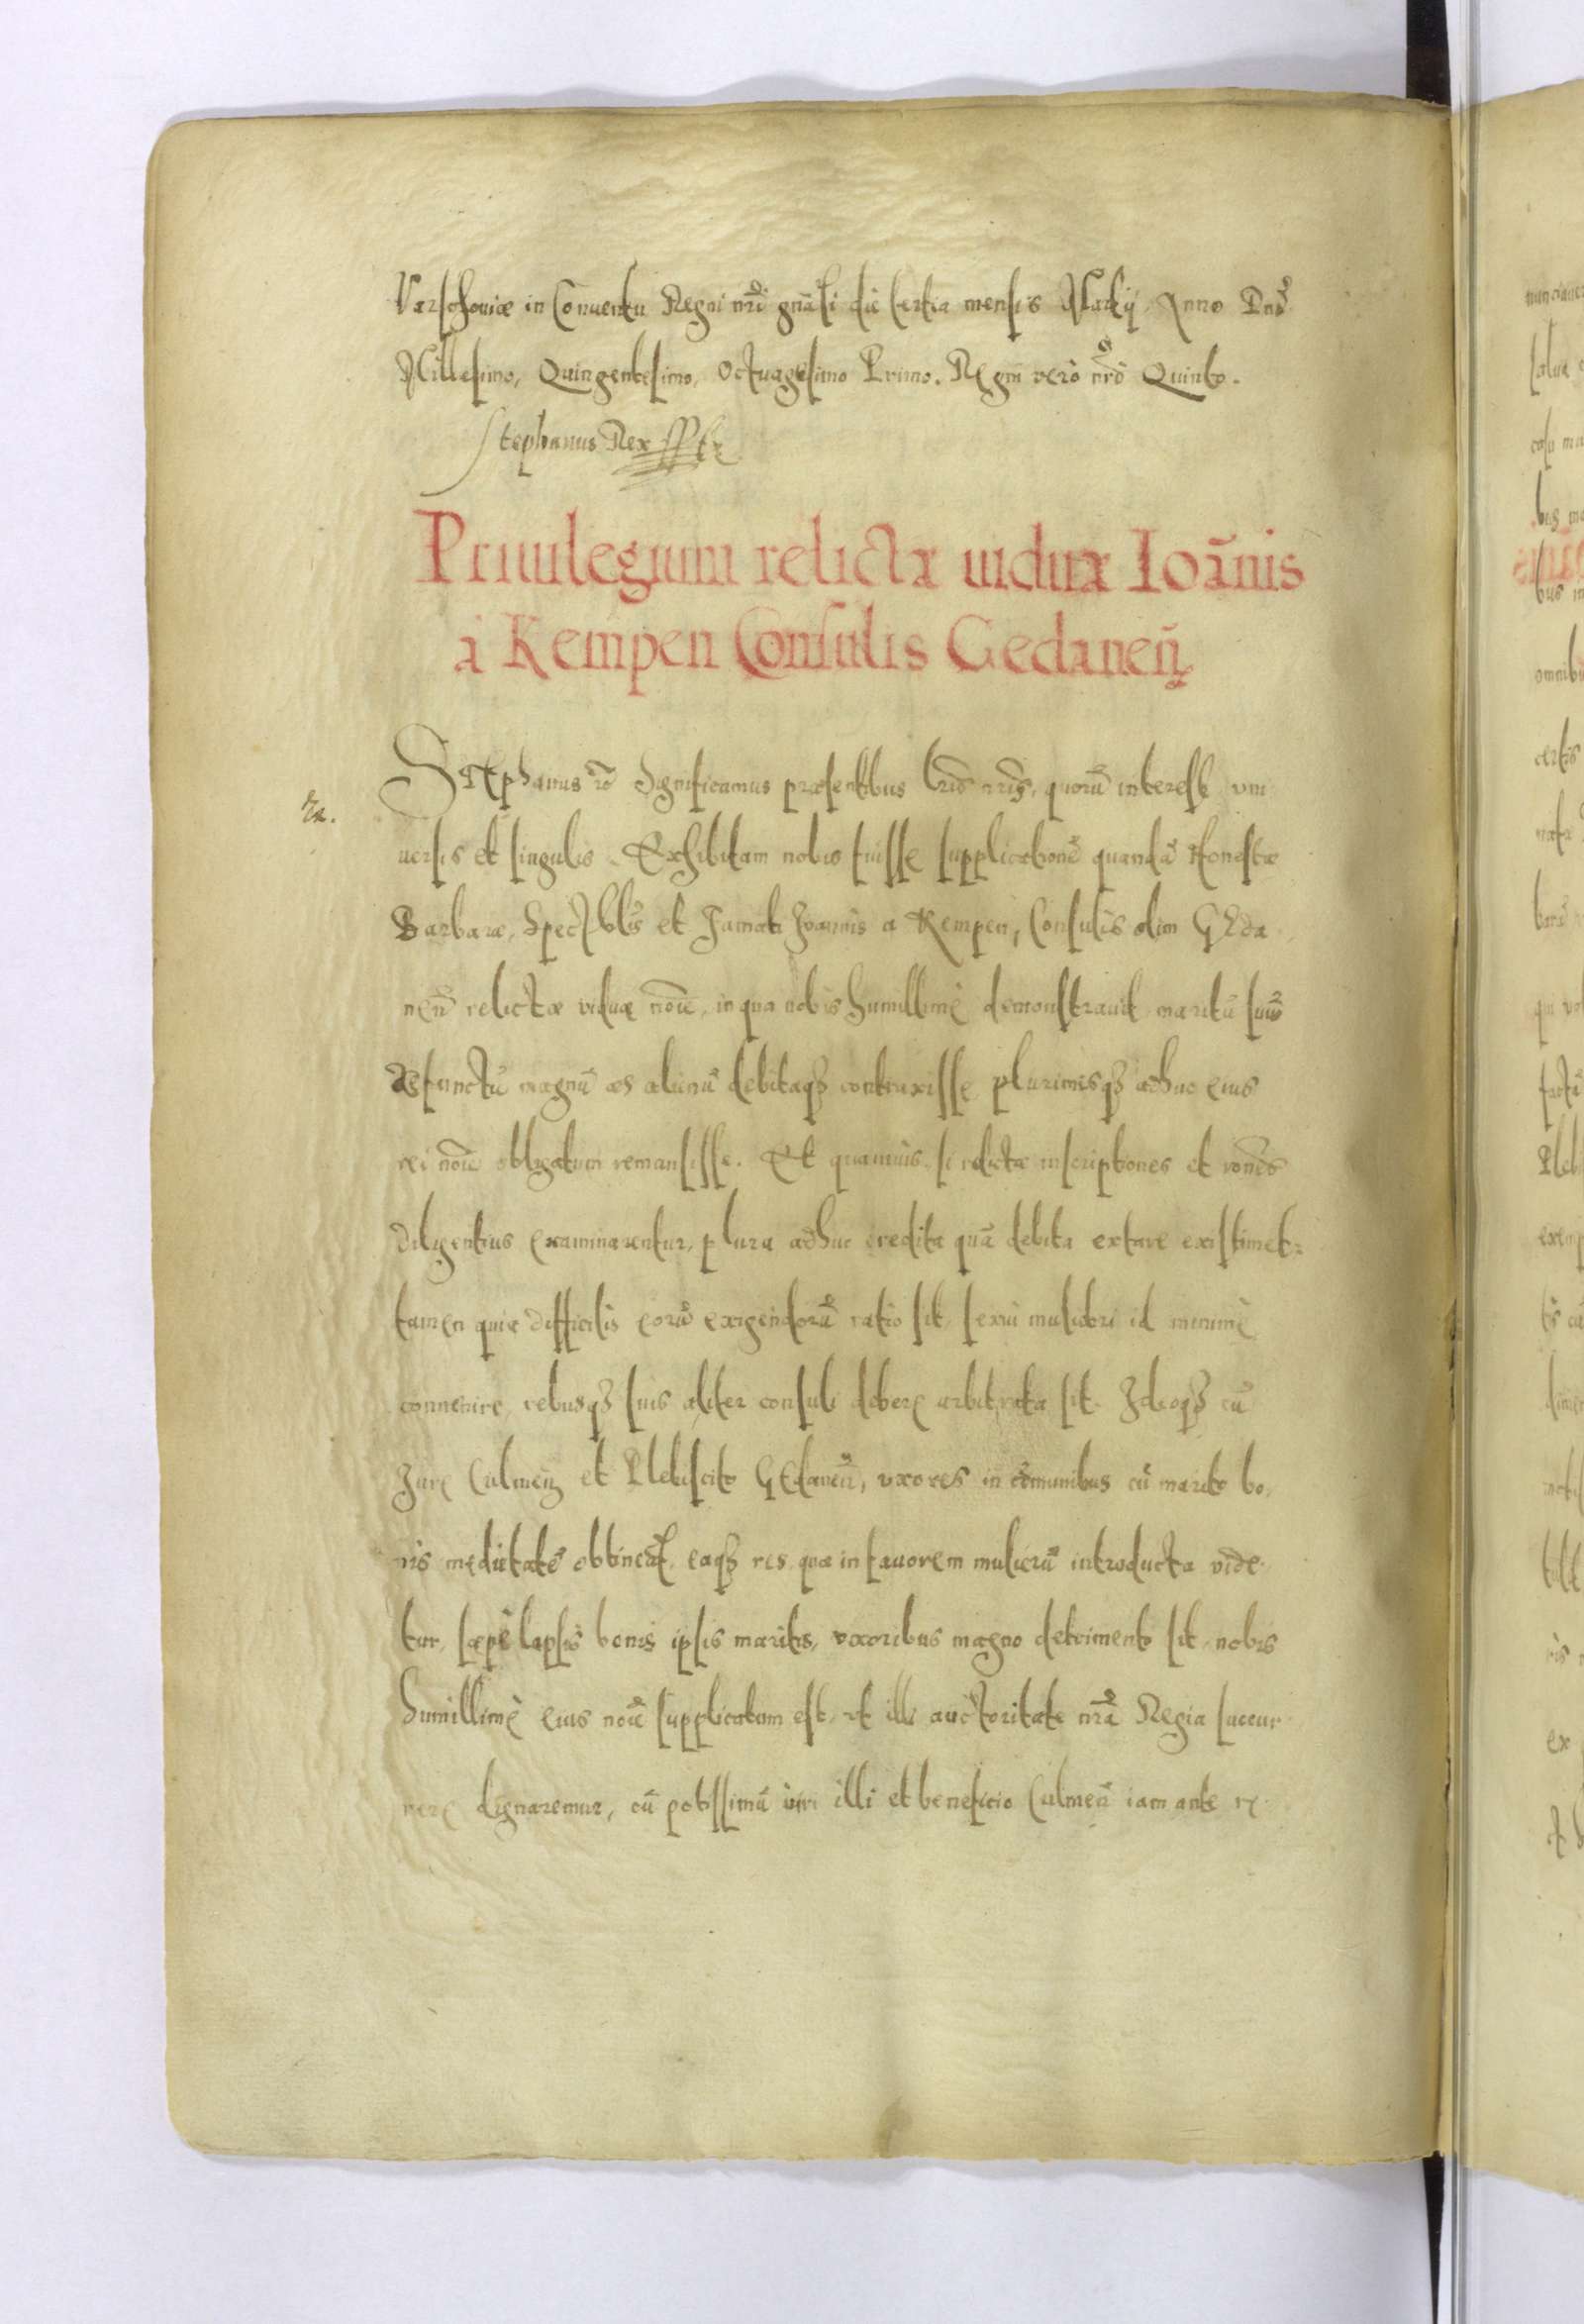 Varschoviæ in Conuentu Regni nr̃i gnãli die tertia mensis Martij Anno Dnĩ
Millesimo, Quingentesimo, Octuagesimo Primo. Regni vero nrĩ Quinto.
Stephanus Rex sst
Priuilegium relictæ uiduæ Ioãnis
à Kempen Consulis Gedaneñ
Stephanus Significamus præsentibus lrĩs nrĩs, quorũ interest vni
uersis et singulis Exhibitam nobis fuisse supplicationẽ quandã Honestæ
Barbaræ, Spectblis et Famati Joannis a Kempen, Consulis olim Geda
neñ relictæ viduæ noĩe, in qua nobis humillimè demonstrauit maritũ suũ
Defunctũ magnũ æs alienũ debitaqȝ contraxisse plurimisqȝ adhuc eius
rei noĩe obligatum remansisse. Et quamuis si relictæ inscriptiones et rones
diligentius examinarentur, plura adhuc credita quã debita extare existimet:
tamen quia difficilis eorũ exigendorũ ratio sit, sexui muliebri id minimè
conuenire, rebusqȝ suis aliter consuli debere arbitrata sit. Ideoqȝ cũ
Jure Culmeñ et Plebiscito Gedaneñ, vxores in cõmunibus cũ marito bo,
nis medietatẽ obtineãt, eaqȝ res quæ in fauorem mulierũ introducta vide
tur, sæpè lapsis bonis ipsis maritis, vxoribus magno detrimento sit, nobis
humillimè eius noĩe supplicatum est, vt illi auctoritate nrã Regia succur
rere dignaremur, cũ potissimũ iuri illi et beneficio Culmeñ iam ante re